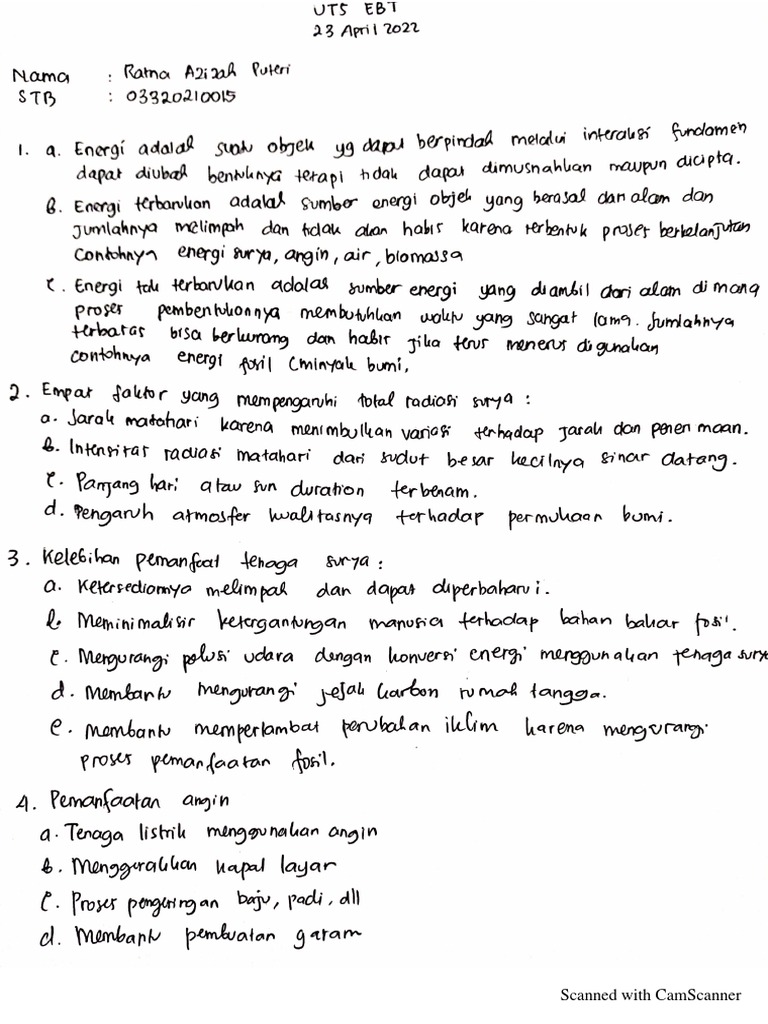 UTS EBT
23 April 2022
Nama : Ratna Azizah Puteri
STB : 03320210015
1. a. Energi adalah suatu objek yg dapat berpindah melalui interaksi fundamen
dapat diubah bentuknya tetapi tidak dapat dimusnahkan maupun dicipta.
b. Energi terbarukan adalah sumber energi objek yang berasal dari alam dan
jumlahnya melimpah dan tidak akan habis karena terbentuk proses berkelanjutan
Contohnya energi surya, angin, air, biomassa
c. Energi tak terbarukan adalas sumber energi yang diambil dari alam di mana
proses pembentukonnya membutuhkan waktu yang sangat lama. Jumlahnya
terbatas bisa berkurang dan habis jika terus menerus digunakan
contohnya energi fosil (minyak bumi,
2. Empat faktor yang mempengaruhi total radiasi surya :
a. Jarak matahari karena menimbulkan variasi terhadap jarak dan penerimaan.
b. Intensitas radiasi matahari dari sudut besar kecilnya sinar datang.
c. Panjang hari atau sun duration terbenam.
d. Pengaruh atmosfer kualitasnya terhadap permukaan bumi.
3. Kelebihan pemanfaat tenaga surya :
a. Ketersediannya melimpah dan dapat diperbaharui.
b. Meminimalisir ketergantungan manusia terhadap bahan bakar fosil.
c. Mengurangi polusi udara dengan konversi energi menggunakan tenaga surya
d. Membantu mengurangi jejak karbon rumah tangga.
e. Membantu memperlambat perubahan iklim karena mengurangi
proses pemanfaatan fosil.
4. Pemanfaatan angin
a. Tenaga listrik menggunakan angin
b. Menggerakkan kapal layar
c. Proses pengeringan baju, padi, dll
d. Membantu pembuatan garam
Scanned with CamScanner